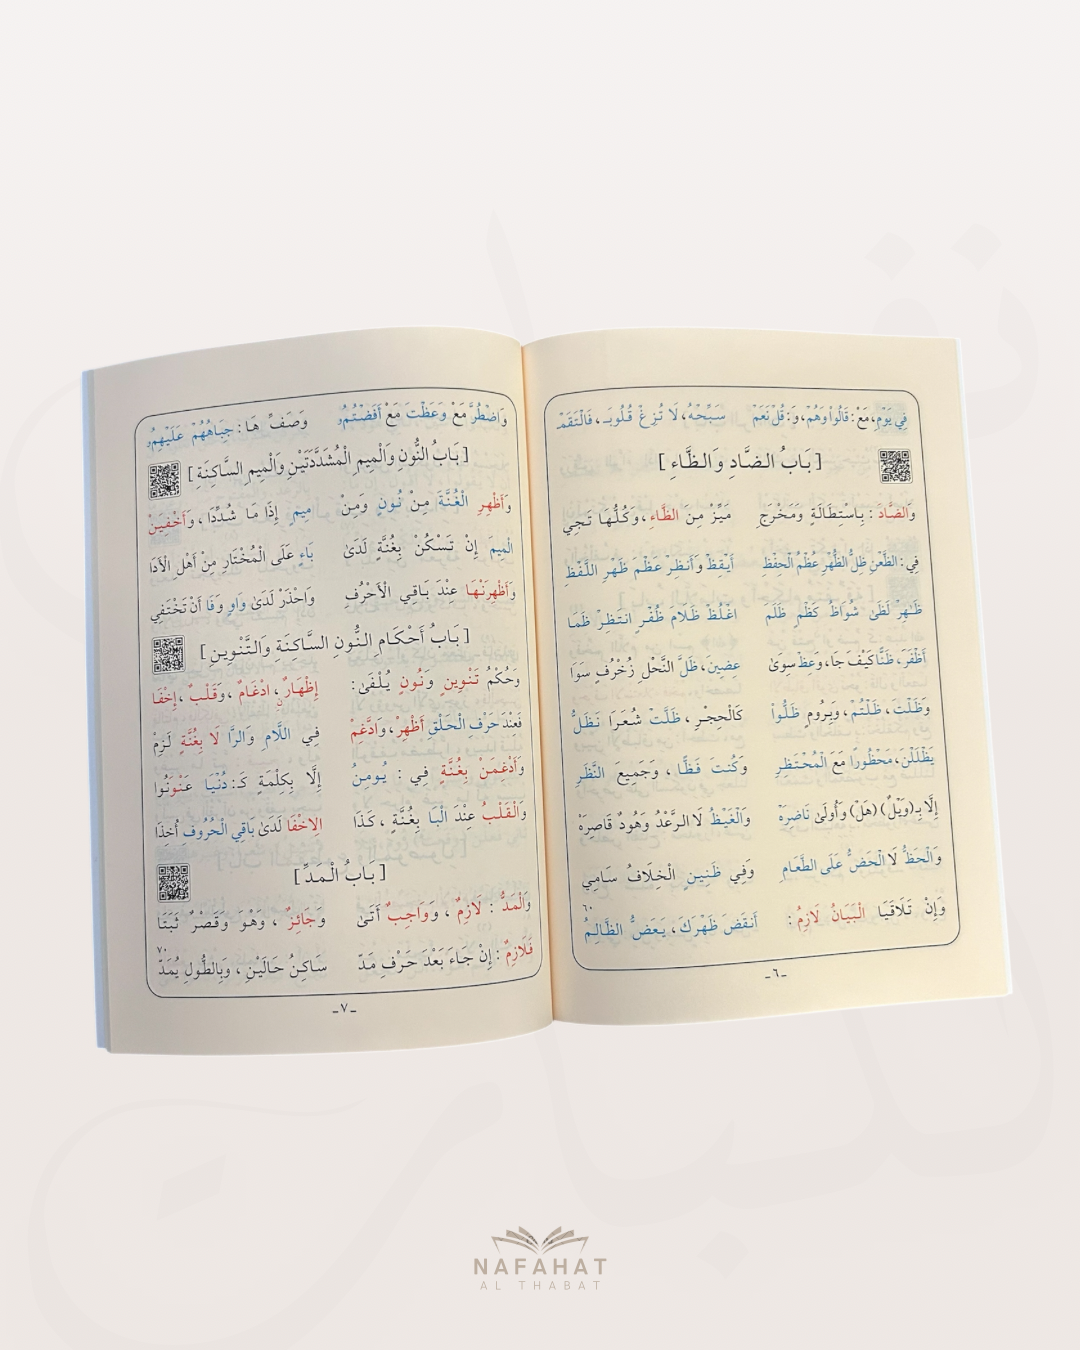 فِي يَوْمِ، مَعْ: قَالُوا وَهُمْ، وَ: قُلْ نَعَمْ سَبِّحْهُ، لَا تُزِغْ قُلُوبَـ، فَالْتَقَمْ
[ بَابُ الضَّادِ وَالظَّاءِ ]
وَالضَّادَ: بِاسْتِطَالَةٍ وَمَخْرَجِ مَيِّزْ مِنَ الظَّاءِ، وَكُلُّهَا تَجِي
فِي: الظَّعْنِ ظِلُّ الظُّهْرِ عُظْمُ الْحِفْظِ أَيْقِظْ وَأَنظِرْ عَظْمَ ظَهْرِ اللَّفْظِ
ظَـٰهِرْ لَظَىٰ شُوَاظُ كَظْمٍ ظَلَمَ اغْلُظْ ظَلَامَ ظُفُرٍ انتَظِرْ ظَمَا
أَظْفَرَ، ظَنًّا كَيْفَ جَا، وَعِظْ سِوَىٰ عِضِينَ، ظَلَّ النَّحْلِ زُخْرُفٍ سَوَا
وَظَلْتَ، ظَلْتُمْ، وَبِرُومٍ ظَلُّوا كَالْحِجْرِ، ظَلَّتْ شُعَرَا نَظَلُّ
يَظْلَلْنَ، مَحْظُورًا مَعَ الْمُحْتَظِرِ وَكُنتَ فَظًّا، وَجَمِيعَ النَّظَرِ
إِلَّا بِـ(وَيْلٌ) (هَلْ) وَأُولَىٰ نَاضِرَهْ وَالْغَيْظُ لَا الرَّعْدُ وَهُودٌ قَاصِرَهْ
وَالْحَظُّ لَا الْحَضُّ عَلَى الطَّعَامِ وَفِي ظَنِينٍ الْخِلَافُ سَامِي
٦٠
وَإِنْ تَلَاقَيَا الْبَيَانُ لَازِمُ: أَنقَضَ ظَهْرَكَ، يَعَضُّ الظَّالِمُ
ـ٦ـ
وَاضْطُرَّ مَعْ وَعَظْتَ مَعْ أَفَضْتُمُو وَصَفِّ هَا: جِبَاهُهُمْ عَلَيْهِمُو
[ بَابُ النُّونِ وَالْمِيمِ الْمُشَدَّدَتَيْنِ وَالْمِيمِ السَّاكِنَةِ ]
وَأَظْهِرِ الْغُنَّةَ مِنْ نُونٍ وَمِنْ مِيمٍ إِذَا مَا شُدِّدَا، وَأَخْفِيَنْ
الْمِيمَ إِنْ تَسْكُنْ بِغُنَّةٍ لَدَىٰ بَاءٍ عَلَى الْمُخْتَارِ مِنْ أَهْلِ الْأَدَا
وَأَظْهِرَنْهَا عِنْدَ بَاقِي الْأَحْرُفِ وَاحْذَرْ لَدَىٰ وَاوٍ وَفَا أَنْ تَخْتَفِي
[ بَابُ أَحْكَامِ النُّونِ السَّاكِنَةِ وَالتَّنْوِينِ ]
وَحُكْمُ تَنْوِينٍ وَنُونٍ يُلْفَىٰ: إِظْهَارٌ، ادْغَامٌ، وَقَلْبٌ، إِخْفَا
فَعِنْدَ حَرْفِ الْحَلْقِ أَظْهِرْ، وَادَّغِمْ فِي اللَّامِ وَالرَّا لَا بِغُنَّةٍ لَزِمْ
وَأَدْغِمَنْ بِغُنَّةٍ فِي: يُومِنُ إِلَّا بِكِلْمَةٍ كَـ: دُنْيَا عَنْوَنُوا
وَالْقَلْبُ عِنْدَ الْبَا بِغُنَّةٍ، كَذَا الِاخْفَا لَدَىٰ بَاقِي الْحُرُوفِ أُخِذَا
[ بَابُ الْمَدِّ ]
وَالْمَدُّ: لَازِمٌ، وَوَاجِبٌ أَتَىٰ وَجَائِزٌ، وَهْوَ وَقَصْرٌ ثَبَتَا
٧٠
فَلَازِمٌ: إِنْ جَاءَ بَعْدَ حَرْفِ مَدّ سَاكِنُ حَالَيْنِ، وَبِالطُّولِ يُمَدّ
ـ٧ـ
NAFAHAT
AL THABAT